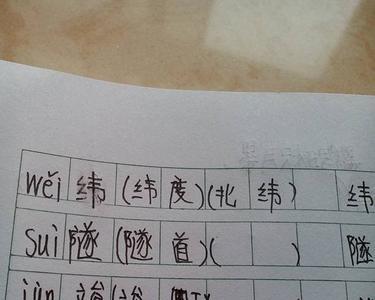 wěi 纬 (纬度)(北纬) 纬
suì 隧 (隧道)( ) 隧
jùn 竣 (竣